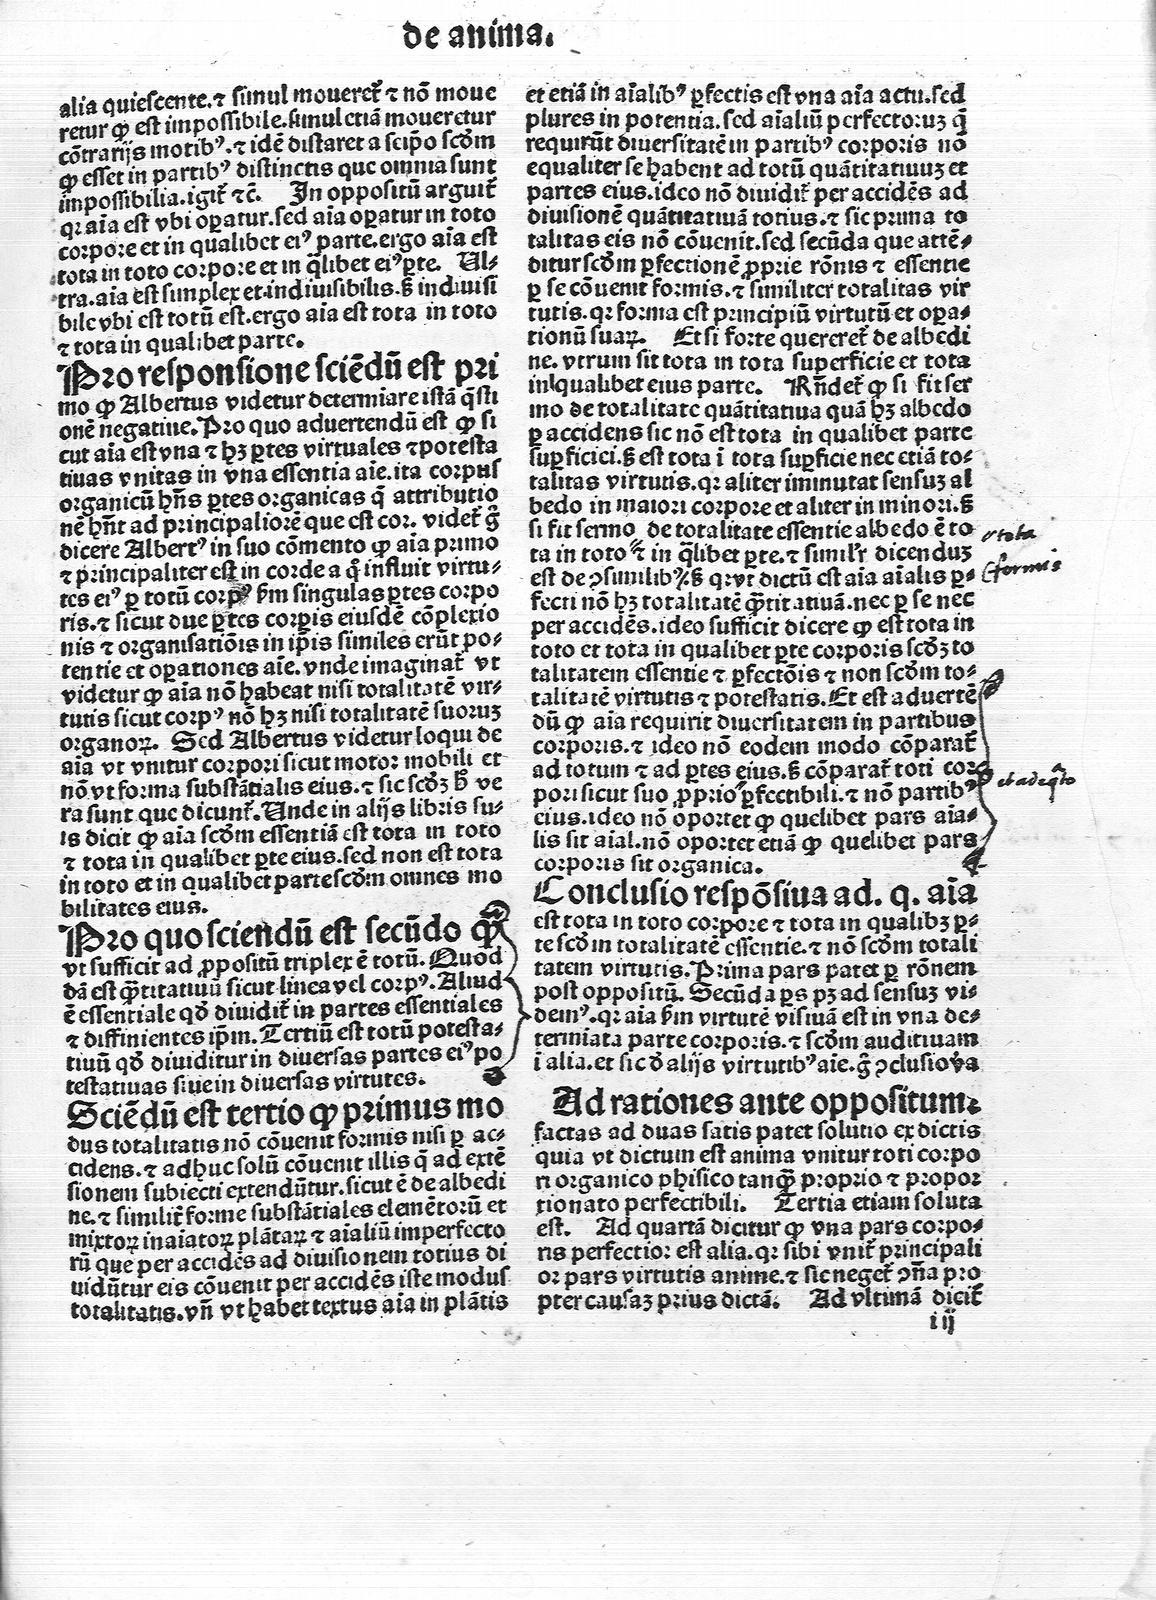 de anima.
alia quiescente.⁊ simul moueret̃ ⁊ nõ moue
retur ꝙ est impossibile.simul etiã moueretur
cõtrarijs motibꝰ.⁊ idẽ distaret a seip̃o scđm
ꝙ esset in partibꝰ distinctis que omnia sunt
impossibilia.igit̃ ⁊c̃. In oppositũ arguit̃
qꝛ aĩa est vbi oꝑatur.sed aĩa oꝑatur in toto
corpore et in qualibet eiꝰ parte.ergo aĩa est
tota in toto corpore et in q̃libet eiꝰ ꝑte. Ul⸗
tra.aĩa est simplex et indiuisibilis.ß indiuisi
bile vbi est totũ est.ergo aĩa est tota in toto
⁊ tota in qualibet parte.
Pro responsione sciẽdũ est pri
mo ꝙ Albertus videtur determiare istã q̃sti
onẽ negatiue.Pro quo aduertendũ est ꝙ si
cut aĩa est vna ⁊ hꝫ ꝑtes virtuales ⁊ potesta
tiuas vnitas in vna essentia aĩe.ita corpus
organicũ hñs ꝑtes organicas q̃ attributio
nẽ hñt ad principaliorẽ que est cor. videt̃ g̃
dicere Albertꝰ in suo cõmento ꝙ aĩa primo
⁊ principaliter est in corde a q̃ influit virtu⸗
tes eiꝰ ꝑ totũ corpꝰ ẜm singulas ꝑtes corpo
ris.⁊ sicut due ꝑtes corꝑis eiusdẽ cõplexio
nis ⁊ organisatiõis in ip̃is similes erũt po⸗
tentie et oꝑationes aĩe.vnde imaginat̃ vt
videtur ꝙ aĩa nõ habeat nisi totalitatẽ vir⸗
tutis sicut corpꝰ nõ hꝫ nisi totalitatẽ suoruꝫ
organoꝝ. Sed Albertus videtur loqui de
aĩa vt vnitur corpori sicut motor mobili et
nõ vt forma substãtialis eius.⁊ sic scđꝫ ħ ve
ra sunt que dicunt̃.Unde in alijs libris su⸗
is dicit ꝙ aĩa scđm essentiã est tota in toto
⁊ tota in qualibet ꝑte eius.sed non est tota
in toto et in qualibet parte scđm omnes mo
bilitates eius.
Pro quo sciendũ est secũdo ꝙ
vt sufficit ad ꝓpositũ triplex ẽ totũ. Quod
dã est q̃titatiuũ sicut linea vel corpꝰ. Aliud
ẽ essentiale qđ diuidit̃ in partes essentiales
⁊ diffinientes ip̃m. Tertiũ est totũ potesta⸗
tiuũ qđ diuiditur in diuersas partes eiꝰ po
testatiuas siue in diuersas virtutes.
Sciẽdũ est tertio ꝙ primus mo
dus totalitatis nõ cõuenit formis nisi ꝑ ac⸗
cidens.⁊ adhuc solũ cõuenit illis q̃ ad extẽ
sionem subiecti extendũtur.sicut ẽ de albedi
ne.⁊ similit̃ forme substãtiales elemẽtorũ et
mixtoꝝ inaĩatoꝝ plãtaꝝ ⁊ aĩaliũ imperfecto
rũ que per accidẽs ad diuisionem totius di
uidũtur eis cõuenit per accidẽs iste modus
totalitatis.vñ vt habet textus aĩa in plãtis
et etiã in aĩalibꝰ ꝑfectis est vna aĩa actu.sed
plures in potentia.sed aĩaliũ perfectoruꝫ q̃
requirũt diuersitatẽ in partibꝰ corporis nõ
equaliter se habent ad totũ quãtitatiuuꝫ et
partes eius.ideo nõ diuidit̃ per accidẽs ad
diuisionẽ quãtitatiuã totius.⁊ sic prima to
talitas eis nõ cõuenit.sed secũda que attẽ⸗
ditur scđm ꝑfectionẽ ꝓprie rõnis ⁊ essentie
ꝑ se cõuenit formis.⁊ similiter totalitas vir
tutis.qꝛ forma est principiũ virtutũ et oꝑa⸗
tionũ suaꝝ. Et si forte quereret̃ de albedi
ne. vtrum sit tota in tota superficie et tota
in qualibet eius parte. Rñdet̃ ꝙ si fit ser
mo de totalitate quãtitatiua quã hꝫ albedo
ꝑ accidens sic nõ est tota in qualibet parte
suꝑficiei.ß est tota ĩ tota suꝑficie nec etiã to⸗
talitas virtutis.qꝛ aliter ĩmutat sensuꝫ al
bedo in maiori corpore et aliter in minori.ß
si fit sermo de totalitate essentie albedo ẽ to
ta in toto ⁊ in q̃libet ꝑte.⁊ simil'r dicenduꝫ
est de ꝯsimilibꝰ.ß qꝛ vt dictũ est aĩa aĩalis ꝑ⸗
fecti nõ hꝫ totalitatẽ q̃titatiuã.nec ꝑ se nec
per accidẽs.ideo sufficit dicere ꝙ est tota in
toto et tota in qualibet ꝑte corporis scđꝫ to
talitatem essentie ⁊ ꝑfectõis ⁊ non scđm to⸗
talitatẽ virtutis ⁊ potestatis. Et est aduertẽ
dũ ꝙ aĩa requirit diuersitatem in partibus
corporis.⁊ ideo nõ eodem modo cõparat̃
ad totum ⁊ ad ꝑtes eius.ß cõparat̃ toti cor
pori sicut suo ꝓprio ꝑfectibili.⁊ nõ partibꝰ
eius.ideo nõ oportet ꝙ quelibet pars aĩa⸗
lis sit aĩal.nõ oportet etiã ꝙ quelibet pars
corporis sit organica.
tota
formis
et adeq̃to
Conclusio respõsiua ad. q. aĩa
est tota in toto corpore ⁊ tota in qualibꝫ ꝑ⸗
te scđm totalitatẽ essentie.⁊ nõ scđm totali
tatem virtutis. Prima pars patet ꝑ rõnem
post oppositũ. Secũda ꝑs pꝫ ad sensuꝫ vi⸗
demꝰ.qꝛ aĩa ẜm virtutẽ visiuã est in vna de⸗
terminata parte corporis.⁊ scđm auditiuam
ĩ alia.et sic đ alijs virtutibꝰ aĩe.g̃ ꝯclusio v̾a
Ad rationes ante oppositum:
factas ad duas satis patet solutio ex dictis
quia vt dictum est anima vnitur toti corpo
ri organico phisico tanꝙ̃ proprio ⁊ propor
tionato perfectibili. Tertia etiam soluta
est. Ad quartã dicitur ꝙ vna pars corpo⸗
ris perfectior est alia.qꝛ sibi vnit̃ principali
or pars virtutis anime.⁊ sic neget̃ ꝯña pro
pter causaꝫ prius dictã. Ad vltimã dicit̃
i iij